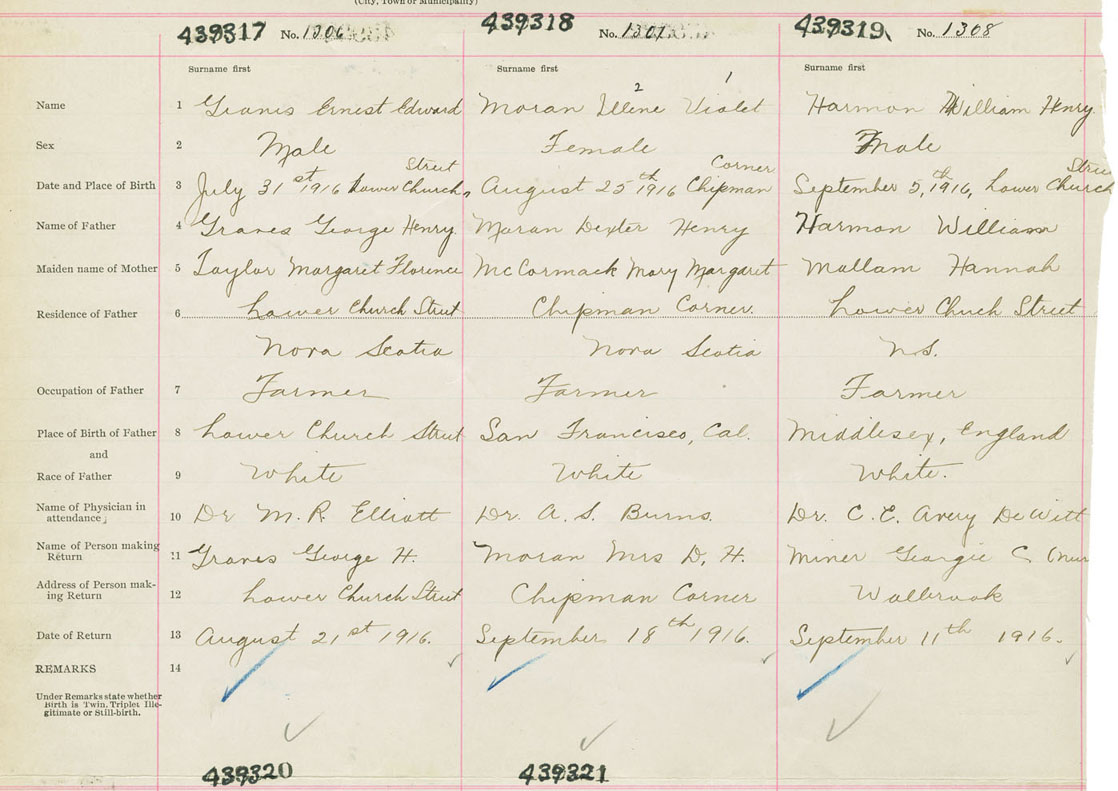 (City, Town or Municipality)
439317 No. 1306 439318 No. 1307 439319 No. 1308
Surname first Surname first Surname first
2 1
Name 1 Graves Ernest Edward Moran Illene Violet Harmon William Henry
Sex 2 Male Female Male
Street Corner Stree
Date and Place of Birth 3 July 31st 1916 Lower Church, August 25th 1916 Chipman September 5th, 1916, Lower Church
Name of Father 4 Graves George Henry. Moran Dexter Henry Harmon William
Maiden name of Mother 5 Taylor Margaret Florence McCormack Mary Margaret Mallam Hannah
Residence of Father 6 Lower Church Street Chipman Corner. Lower Chuch Street
Nova Scotia Nova Scotia N.S.
Occupation of Father 7 Farmer Farmer Farmer
Place of Birth of Father 8 Lower Church Street San Francisco, Cal. Middlesex, England
and
Race of Father 9 White White White.
Name of Physician in
attendance 10 Dr M. R. Elliott Dr. A. S. Burns. Dr. C. E. Avery DeWitt
Name of Person making
Return 11 Graves George H. Moran Mrs D. H. Miner Georgie C.
Address of Person mak-
ing Return 12 Lower Church Street Chipman Corner Wallbrook
Date of Return 13 August 21st 1916. September 18th 1916. September 11th 1916.
REMARKS 14
Under Remarks state whether
Birth is Twin, Triplet Ille-
gitimate or Still-birth.
439320 439321